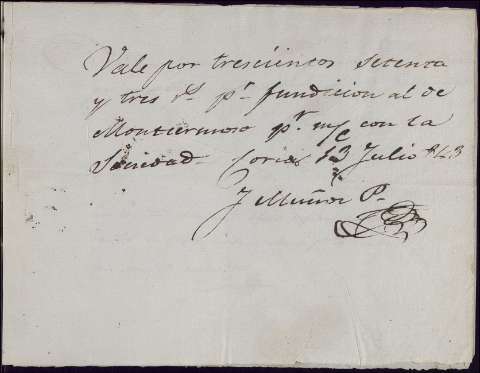 Vale por trescientos setenta
y tres rs. pr. fundicion al de
Montermoso pr. m/c con la
Sociedad. Corias 13 Julio 843
J Muñoz P.